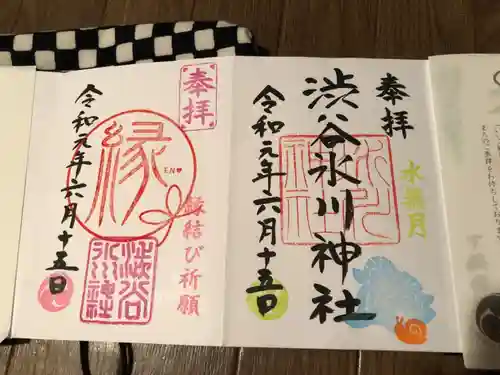 奉拝
渋谷氷川神社
水無月
令和元年六月十五日
奉拝
縁
EN
縁結び祈願
渋谷
氷川神社
令和元年六月十五日